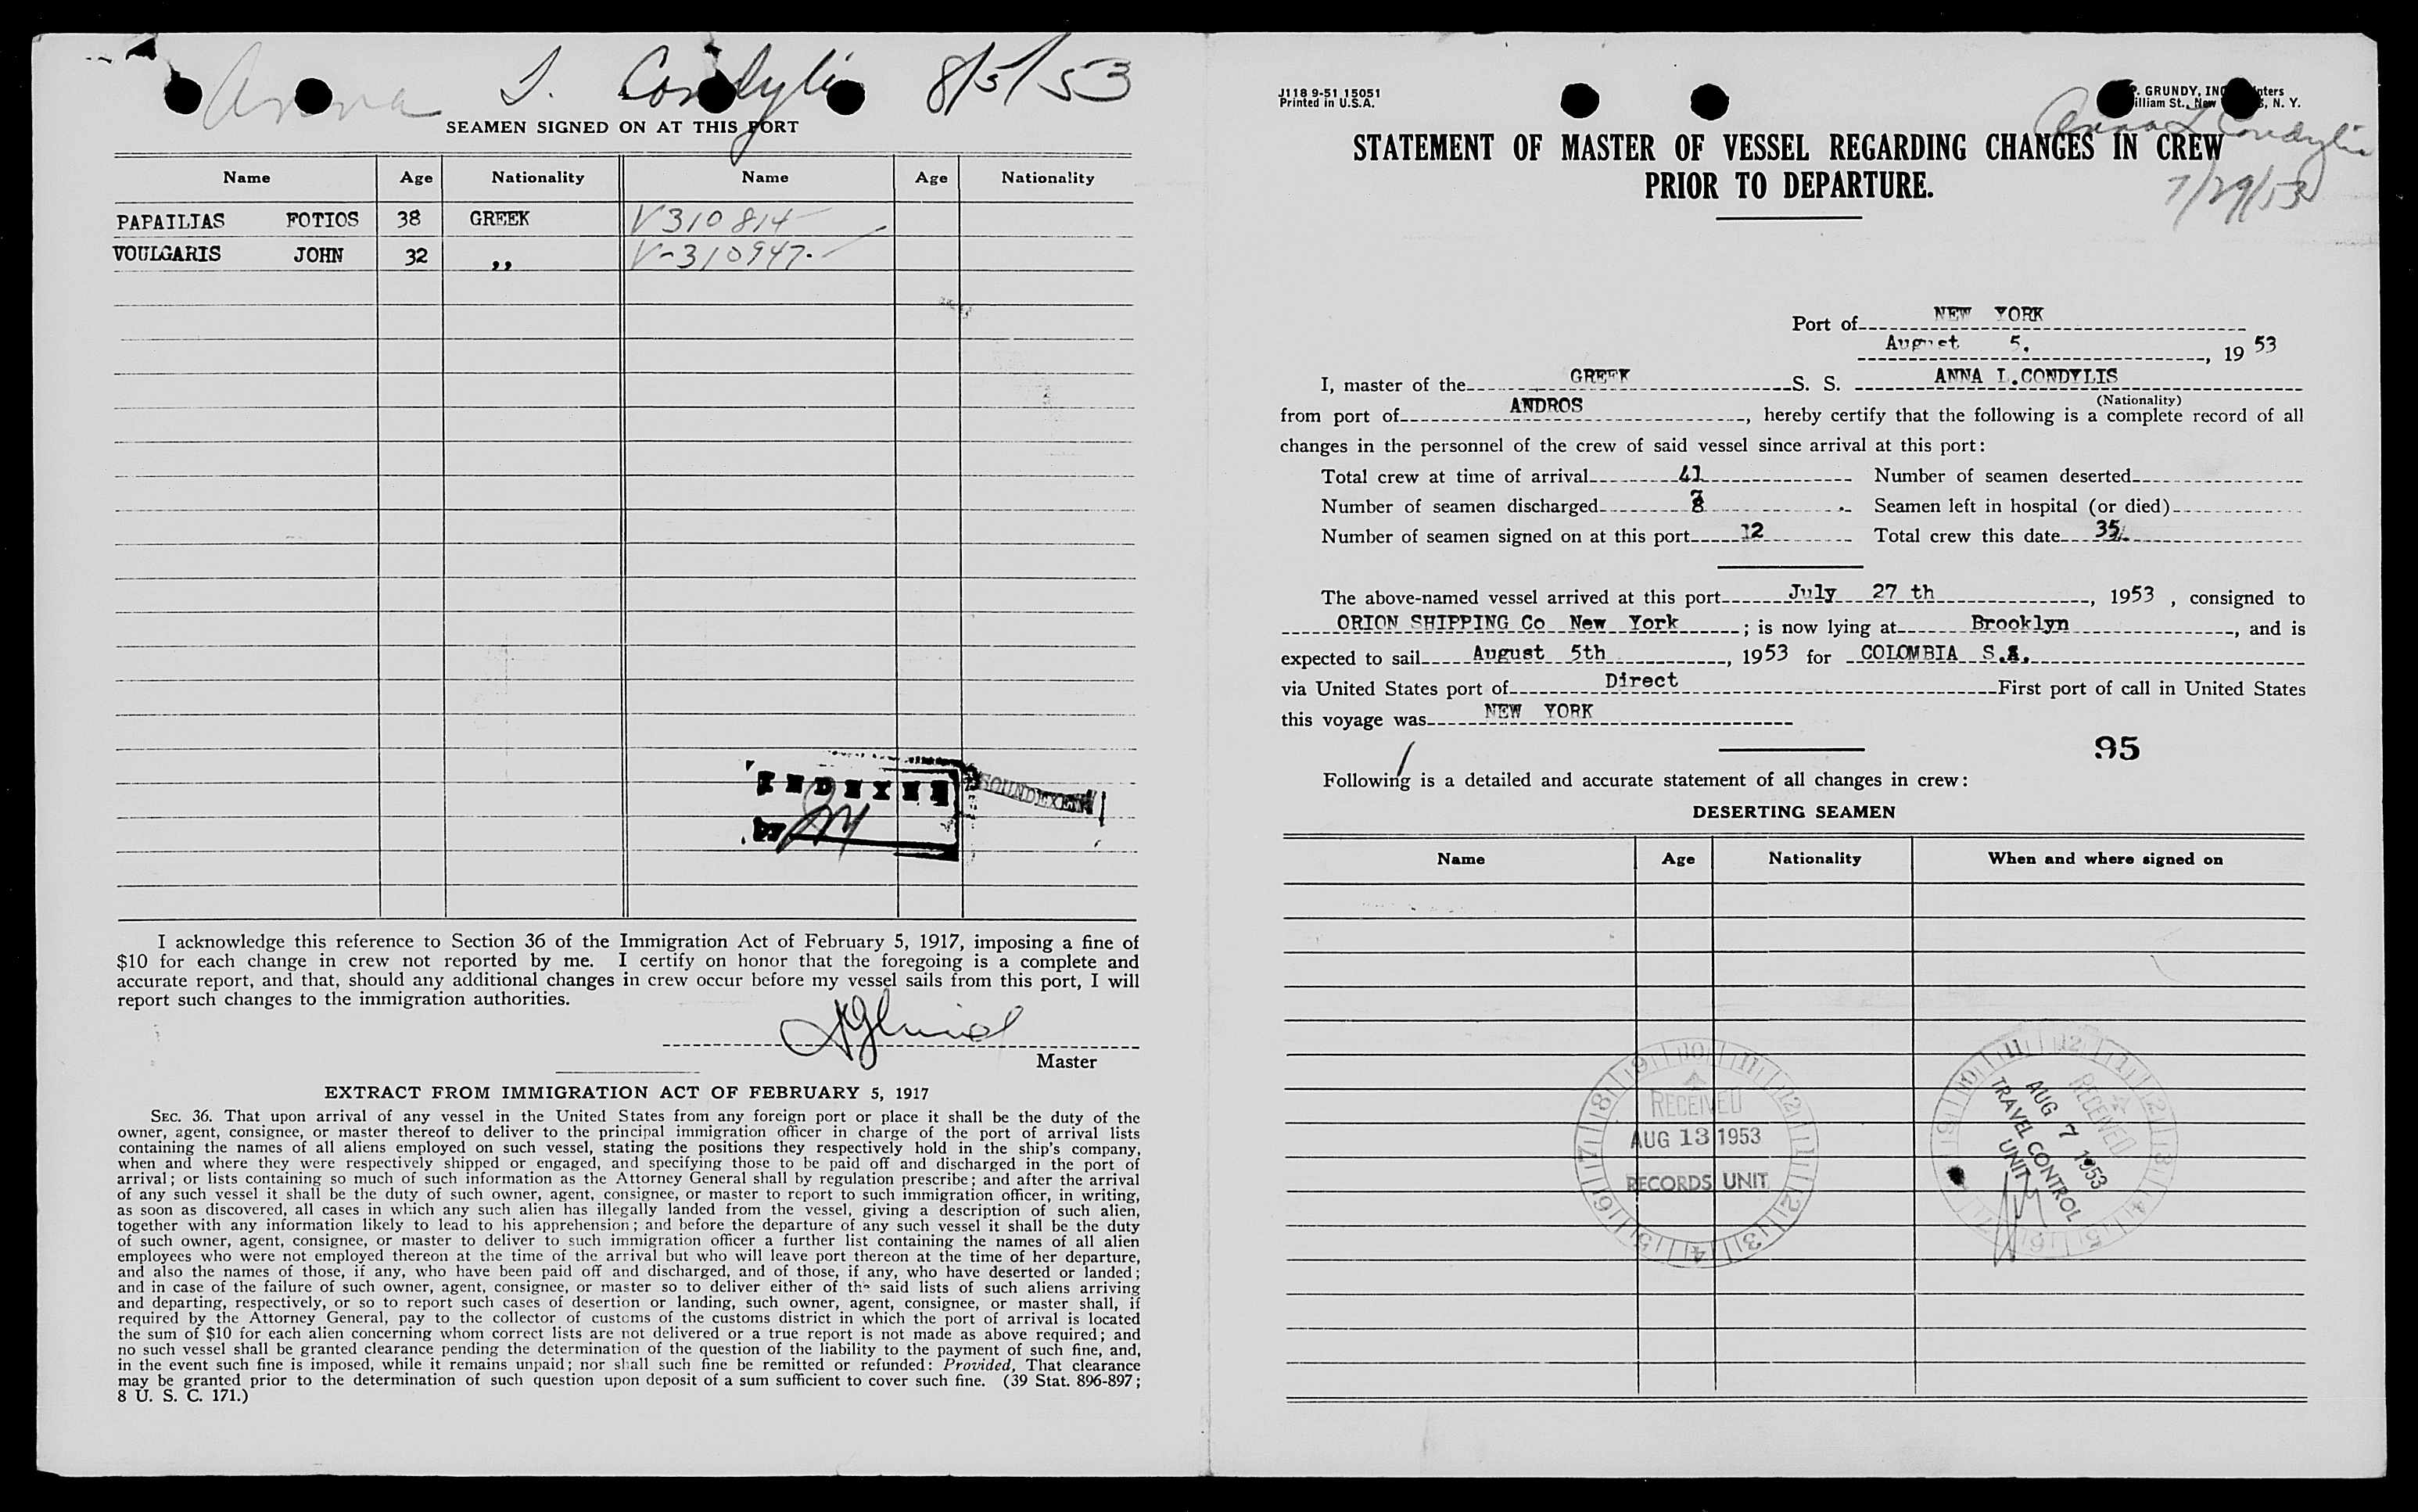 Anna L. Condylis 8/5/53
SEAMEN SIGNED ON AT THIS PORT
Name Age Nationality Name Age Nationality
PAPAILIAS FOTIOS 38 GREEK V310814
VOULGARIS JOHN 32 ,, V-310947.
INDEXED
SOUNDEXED
I acknowledge this reference to Section 36 of the Immigration Act of February 5, 1917, imposing a fine of
$10 for each change in crew not reported by me. I certify on honor that the foregoing is a complete and
accurate report, and that, should any additional changes in crew occur before my vessel sails from this port, I will
report such changes to the immigration authorities.
Master
EXTRACT FROM IMMIGRATION ACT OF FEBRUARY 5, 1917
SEC. 36. That upon arrival of any vessel in the United States from any foreign port or place it shall be the duty of the
owner, agent, consignee, or master thereof to deliver to the principal immigration officer in charge of the port of arrival lists
containing the names of all aliens employed on such vessel, stating the positions they respectively hold in the ship's company,
when and where they were respectively shipped or engaged, and specifying those to be paid off and discharged in the port of
arrival; or lists containing so much of such information as the Attorney General shall by regulation prescribe; and after the arrival
of any such vessel it shall be the duty of such owner, agent, consignee, or master to report to such immigration officer, in writing,
as soon as discovered, all cases in which any such alien has illegally landed from the vessel, giving a description of such alien,
together with any information likely to lead to his apprehension; and before the departure of any such vessel it shall be the duty
of such owner, agent, consignee, or master to deliver to such immigration officer a further list containing the names of all alien
employees who were not employed thereon at the time of the arrival but who will leave port thereon at the time of her departure,
and also the names of those, if any, who have been paid off and discharged, and of those, if any, who have deserted or landed;
and in case of the failure of such owner, agent, consignee, or master so to deliver either of the said lists of such aliens arriving
and departing, respectively, or so to report such cases of desertion or landing, such owner, agent, consignee, or master shall, if
required by the Attorney General, pay to the collector of customs of the customs district in which the port of arrival is located
the sum of $10 for each alien concerning whom correct lists are not delivered or a true report is not made as above required; and
no such vessel shall be granted clearance pending the determination of the question of the liability to the payment of such fine, and,
in the event such fine is imposed, while it remains unpaid; nor shall such fine be remitted or refunded: Provided, That clearance
may be granted prior to the determination of such question upon deposit of a sum sufficient to cover such fine. (39 Stat. 896-897;
8 U. S. C. 171.)
J118 9-51 15051
Printed in U.S.A.
GRUNDY, INC
William St., New N. Y.
Anna L Condylis
7/29/53
STATEMENT OF MASTER OF VESSEL REGARDING CHANGES IN CREW
PRIOR TO DEPARTURE.
Port of NEW YORK
August 5, 19 53
I, master of the GREEK S. S. ANNA L.CONDYLIS
(Nationality)
from port of ANDROS, hereby certify that the following is a complete record of all
changes in the personnel of the crew of said vessel since arrival at this port:
Total crew at time of arrival 41 Number of seamen deserted
Number of seamen discharged 8 Seamen left in hospital (or died)
Number of seamen signed on at this port 12 Total crew this date 35
The above-named vessel arrived at this port July 27 th, 1953, consigned to
ORION SHIPPING Co New York; is now lying at Brooklyn, and is
expected to sail August 5th, 1953 for COLOMBIA S.A.
via United States port of Direct First port of call in United States
this voyage was NEW YORK
95
Following is a detailed and accurate statement of all changes in crew:
DESERTING SEAMEN
Name Age Nationality When and where signed on
RECEIVED
AUG 13 1953
RECORDS UNIT
RECEIVED
AUG 7 1953
TRAVEL CONTROL
UNIT